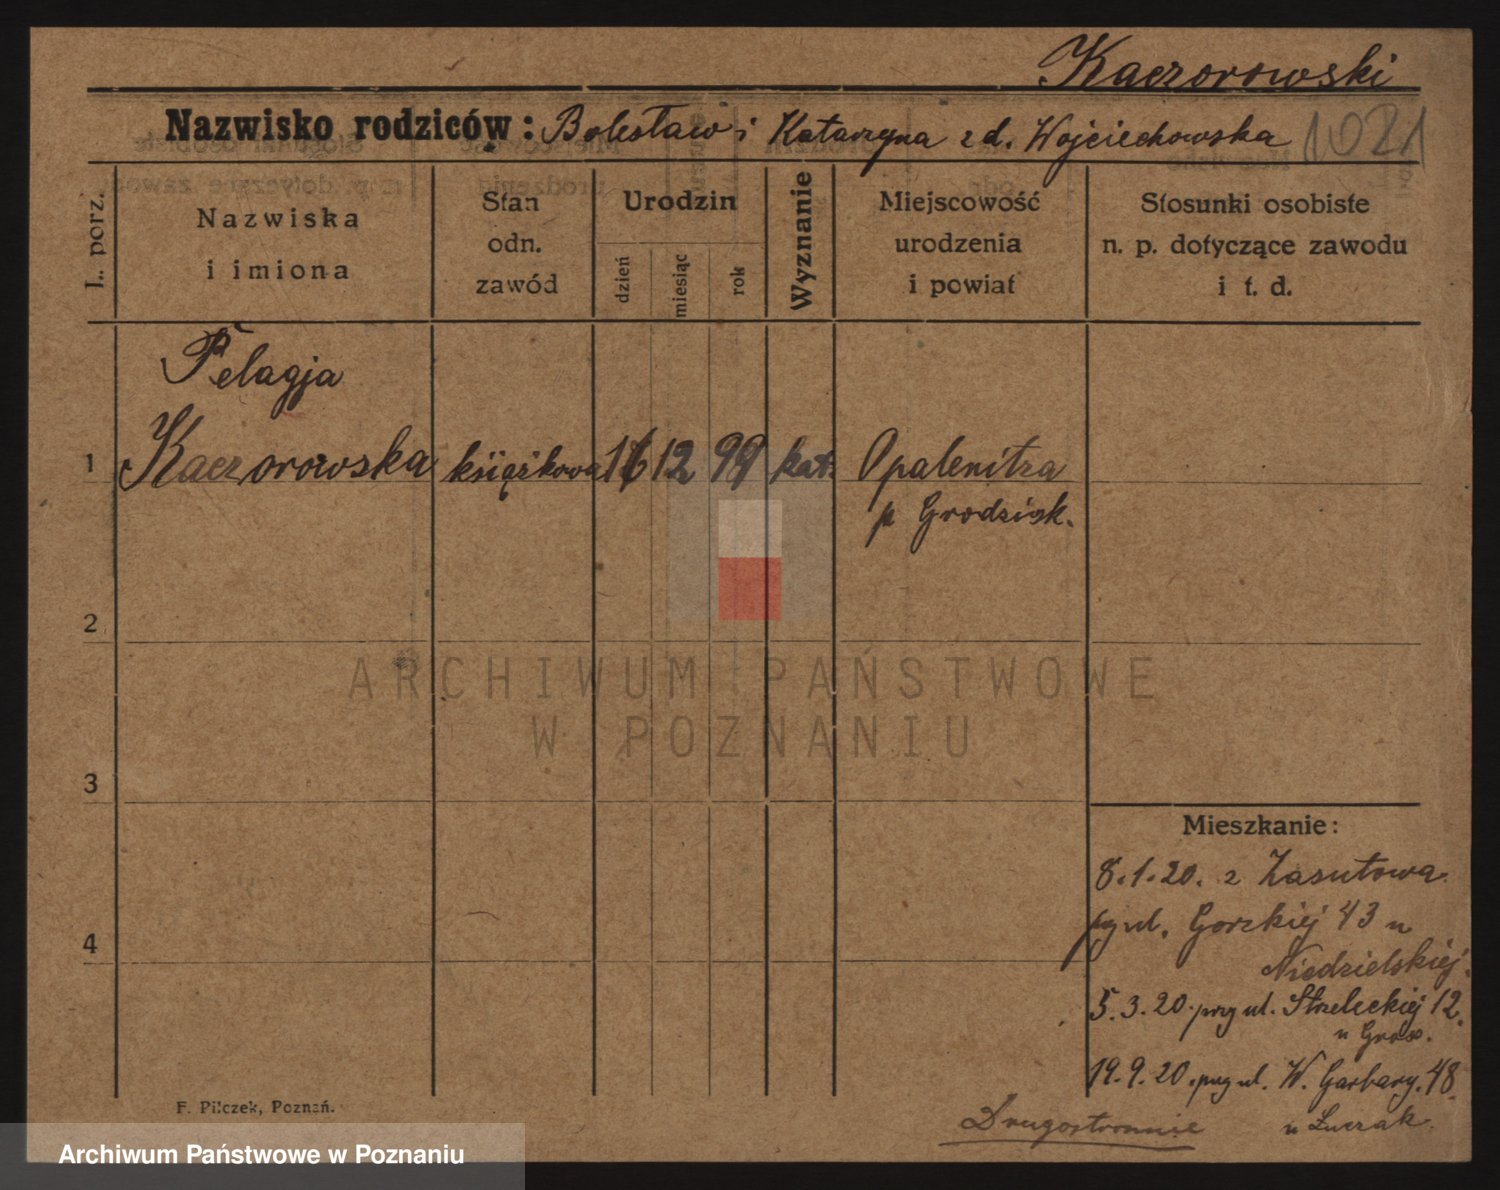 Kaczorowski
Nazwisko rodziców: Bolesław i Katarzyna z d. Wojciechowska 1021
L. porz.
Nazwiska
i imiona
Stan
odn.
zawód
Urodzin
dzień
miesiąc
rok
Wyznanie
Miejscowość
urodzenia
i powiat
Stosunki osobiste
n. p. dotyczące zawodu
i t. d.
Pelagja
1 Kaczorowska książkowa 16 12 99 kat. Opalenitza
p Grodzisk.
2
ARCHIWUM PAŃSTWOWE
W POZNANIU
3
Mieszkanie:
8.1.20. z Zasutowa
przy ul. Gorzkiej 43 u
4
Niedzielskiej.
5.3.20. przy ul. Strzeleckiej 12.
u
19.9.20. przy ul. W. Garbary. 48.
u Luczak.
F. Pilczek, Poznań.
Drugostronnie
Archiwum Państwowe w Poznaniu